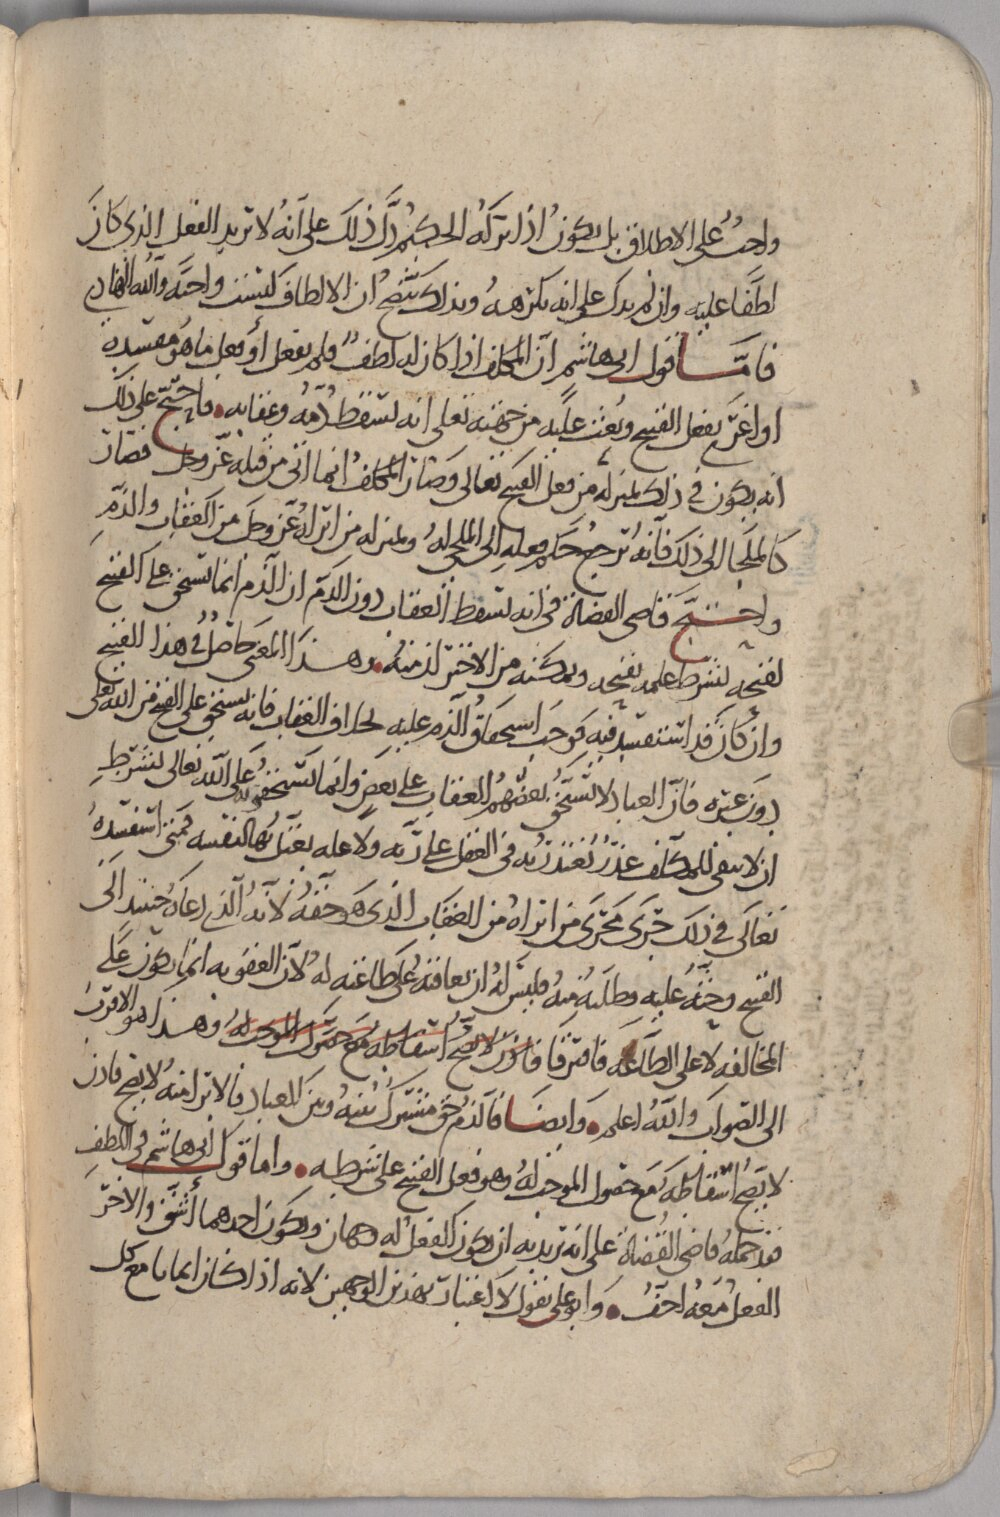 واجبٌ على الاطلاق بل يكون اذا تركه الحكيم دَلَّ ذلك على انه لا يريد الفعل الذي كان
لطفًا عليه وان لم يدل على انه يكرهه وبذلك يتضح ان الالطاف ليست واجبة والله الهادي
فامَّــا قول ابي هاشم ان المكلف اذا كان له لطفٌ ولم يفعل او فعل ما هو مفسدة
او اغري بفعل القبيح وبعث عليه من جهته تعالى انه يسقط ذمه وعقابه • فاحتج على ذلك
انه يكون في ذلك بمنزلة من فعل القبيح تعالى وصار المكلف انما اتى من قبله عز وجل فصار
كالملجا الى ذلك فانه يرجع حكم فعله الى الملجي له وبمنزلة من ابراه عز وجل من العقاب والذم
واحتــج قاضي القضاة في انه يسقط العقاب دون الذم ان الذم انما يستحق على القبيح
لقبحه بشرط علمه بقبحه وتمكنه من الاحتراز منه • وهذا المعنى حاصلٌ في هذا القبيح
وان كان قد استفسد فيه فوجب استحقاق الذم عليه بخلاف العقاب فانه يستحق على القبيح من الله تعالى
دون غيره فان العباد لا يستحق بعضهم العقاب على بعض وانما يستحقونه على الله تعالى بشرط
ان لا يبقى للمكلف عذرٌ يعتذر به في الفعل على ربه ولا علة يعتل بها لنفسه فمتى استفسده
تعالى في ذلك جرى مجرى من ابراه من العقاب الذي هو حقه لانه الذي دعاه حينئذ الى
القبيح وحثه عليه وطلبه منه فليس له ان يعاقبه على طاعته له لان العقوبة انما يكون على
المخالفة لا على الطاعة فافترقا فاذن لا يصح اسقاطه مع حصول الموجب له وهذا هو الاقرب
الى الصواب والله اعلم • وايضًــا فالذم حق مشترك بينه وبين العباد فالابرا منه لا يصح فاذن
لا يصح اسقاطه مع حصول الموجب له وهو فعل القبيح على شرطه • واما قول ابي هاشم في اللطف
فقد حمله قاضي القضاة على انه يريد به ان يكون الفعل له وجهان ويكون احدهما اشق والاخر
الفعل معه اخف • وابو علي يقول لا اعتبار بهذين الوجهين لانه اذا كان ايمانا مع كل